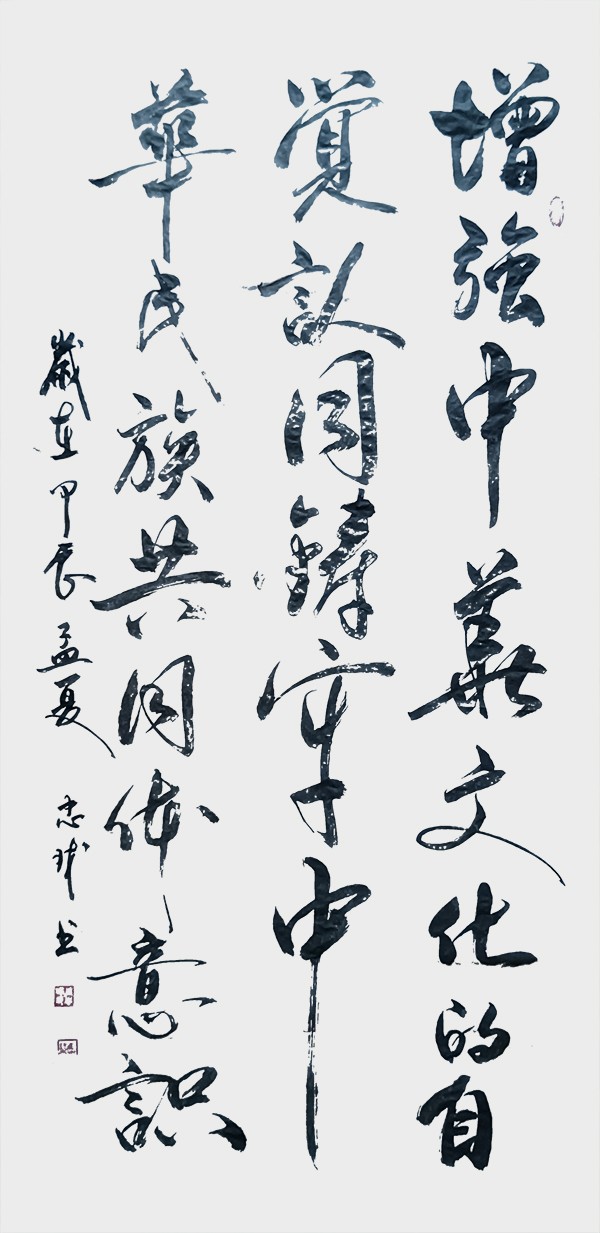 增強中華文化的自
覺認同鑄牢中
華民族共同体意識
歲在甲辰孟夏 忠球书